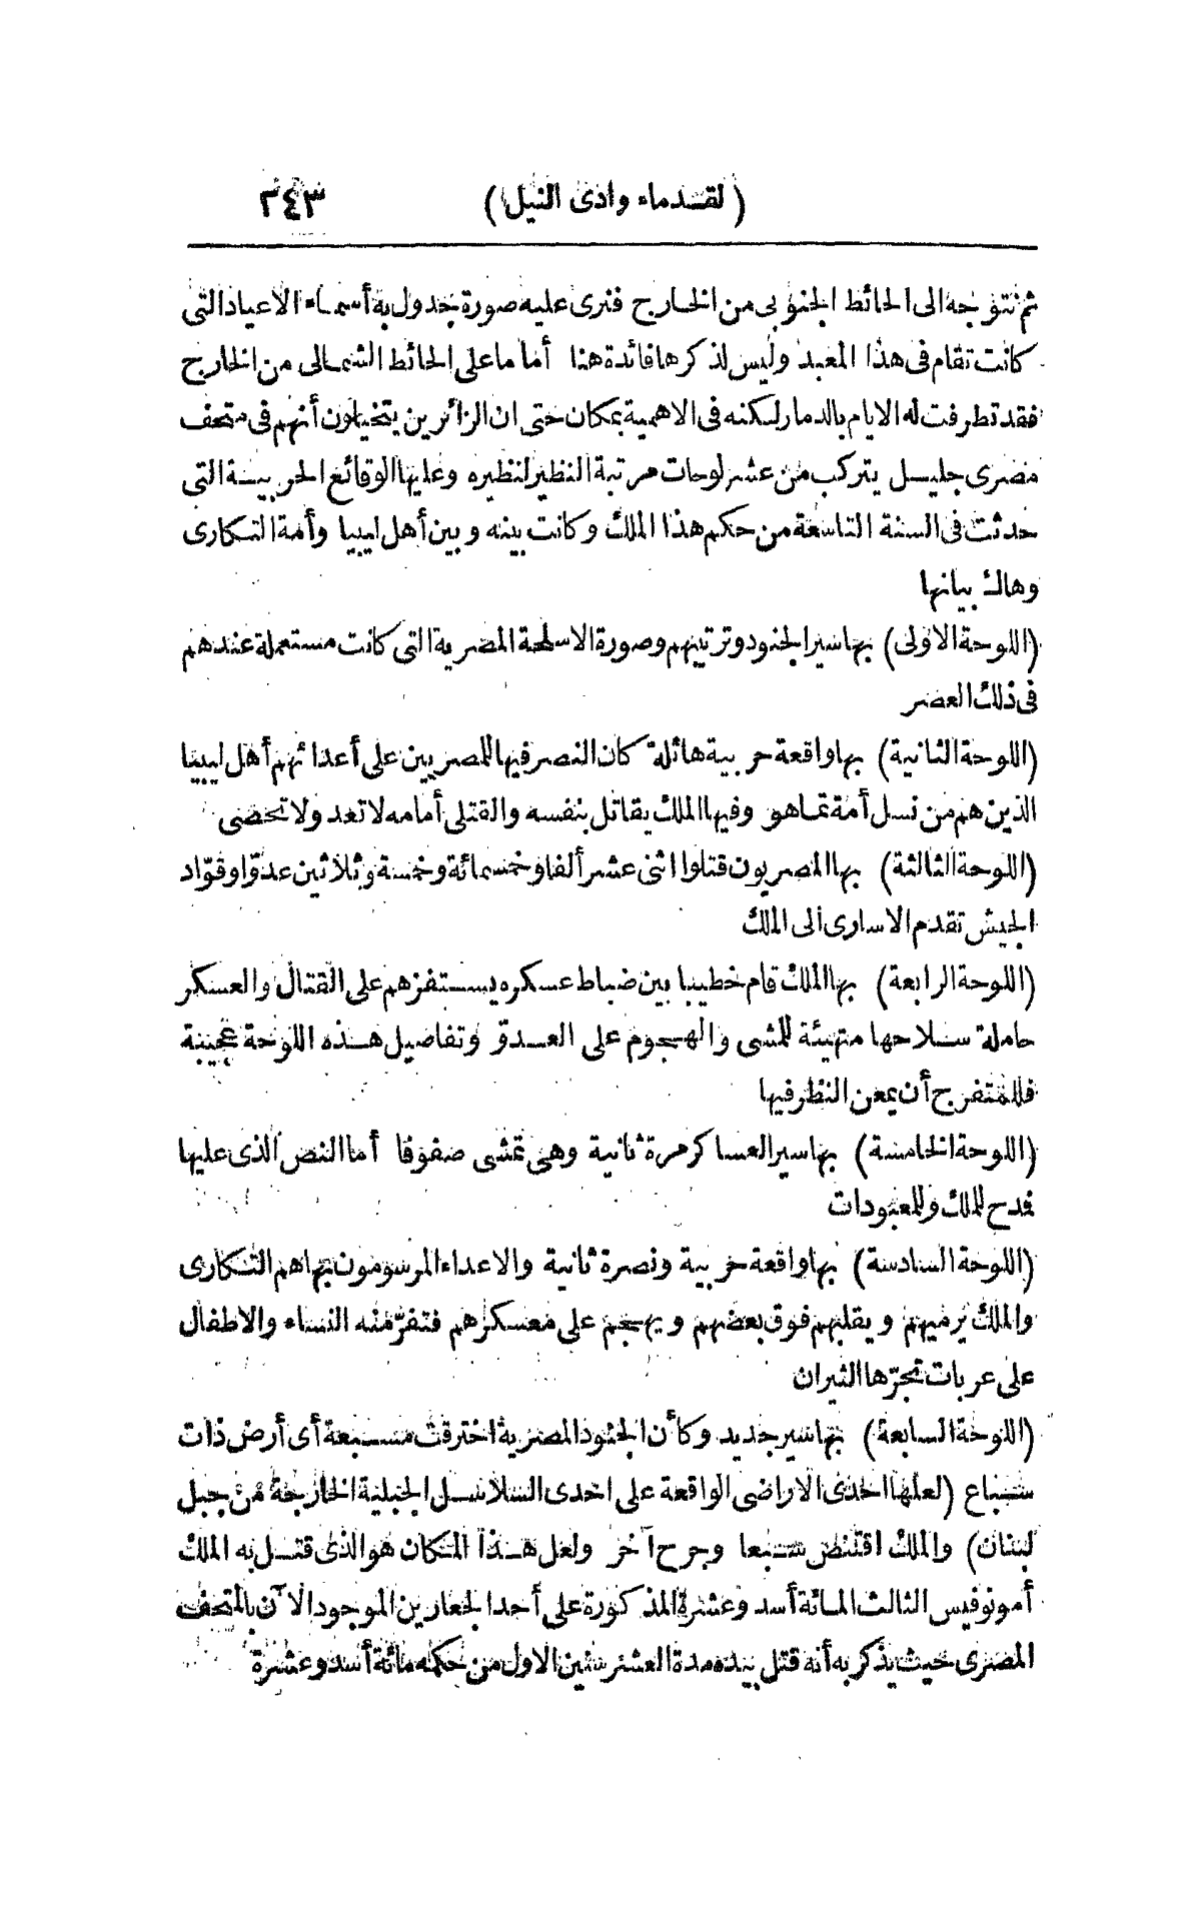 (لقدماء وادى النيل) ٣٤٣
ثم نتوجه الى الحائط الجنوبى من الخارج فنرى عليه صورة جدول به أسماء الاعياد التى
كانت تقام فى هذا المعبد وليس لذكرها فائدة هنا أما ما على الحائط الشمالى من الخارج
فقد تطرفت له الايام بالدمار لكنه فى الاهمية بمكان حتى ان الزائرين يتخيلون أنهم فى متحف
مصرى جليل يتركب من عشر لوحات مرتبة النظير لنظيره وعليها الوقائع الحربية التى
حدثت فى السنة التاسعة من حكم هذا الملك وكانت بينه وبين أهل ليبيا وأمة التكارى
وهاك بيانها
(اللوحة الاولى) بها سير الجنود وترتيبهم وصورة الاسلحة المصرية التى كانت مستعملة عندهم
فى ذلك العصر
(اللوحة الثانية) بها واقعة حربية هائلة كان النصر فيها للمصريين على أعدائهم أهل ليبيا
الذين هم من نسل أمة تماهو وفيها الملك يقاتل بنفسه والقتلى أمامه لا تعد ولا تحصى
(اللوحة الثالثة) بها المصريون قتلوا اثنى عشر ألفا وخمسمائة وخمسة وثلاثين عدوّا وقوّاد
الجيش تقدم الاسارى الى الملك
(اللوحة الرابعة) بها الملك قام خطيبا بين ضباط عسكره يستفزهم على القتال والعسكر
حاملة سلاحها متهيئة للمشى والهجوم على العدوّ وتفاصيل هذه اللوحة عجيبة
فللمتفرج أن يمعن النظر فيها
(اللوحة الخامسة) بها سير العساكر مرة ثانية وهى تمشى صفوفا أما النص الذى عليها
فمدح للملك وللمعبودات
(اللوحة السادسة) بها واقعة حربية ونصرة ثانية والاعداء المرسومون بها هم التكارى
والملك يرميهم ويقلبهم فوق بعضهم ويهجم على معسكرهم فتفرّ منه النساء والاطفال
على عربات تجرّها الثيران
(اللوحة السابعة) بها سير جديد وكأن الجنود المصرية اخترقت مسبعة أى أرض ذات
سباع (لعلها احدى الاراضى الواقعة على احدى السلاسل الجبلية الخارجة من جبل
لبنان) والملك اقتنص سبعا وجرح آخر ولعل هذا المكان هو الذى قتل به الملك
أمونوفيس الثالث المائة أسد وعشرة المذكورة على أحد الجعارين الموجود الآن بالمتحف
المصرى حيث يذكر به أنه قتل بيده مدة العشر سنين الاول من حكمه مائة أسد وعشرة